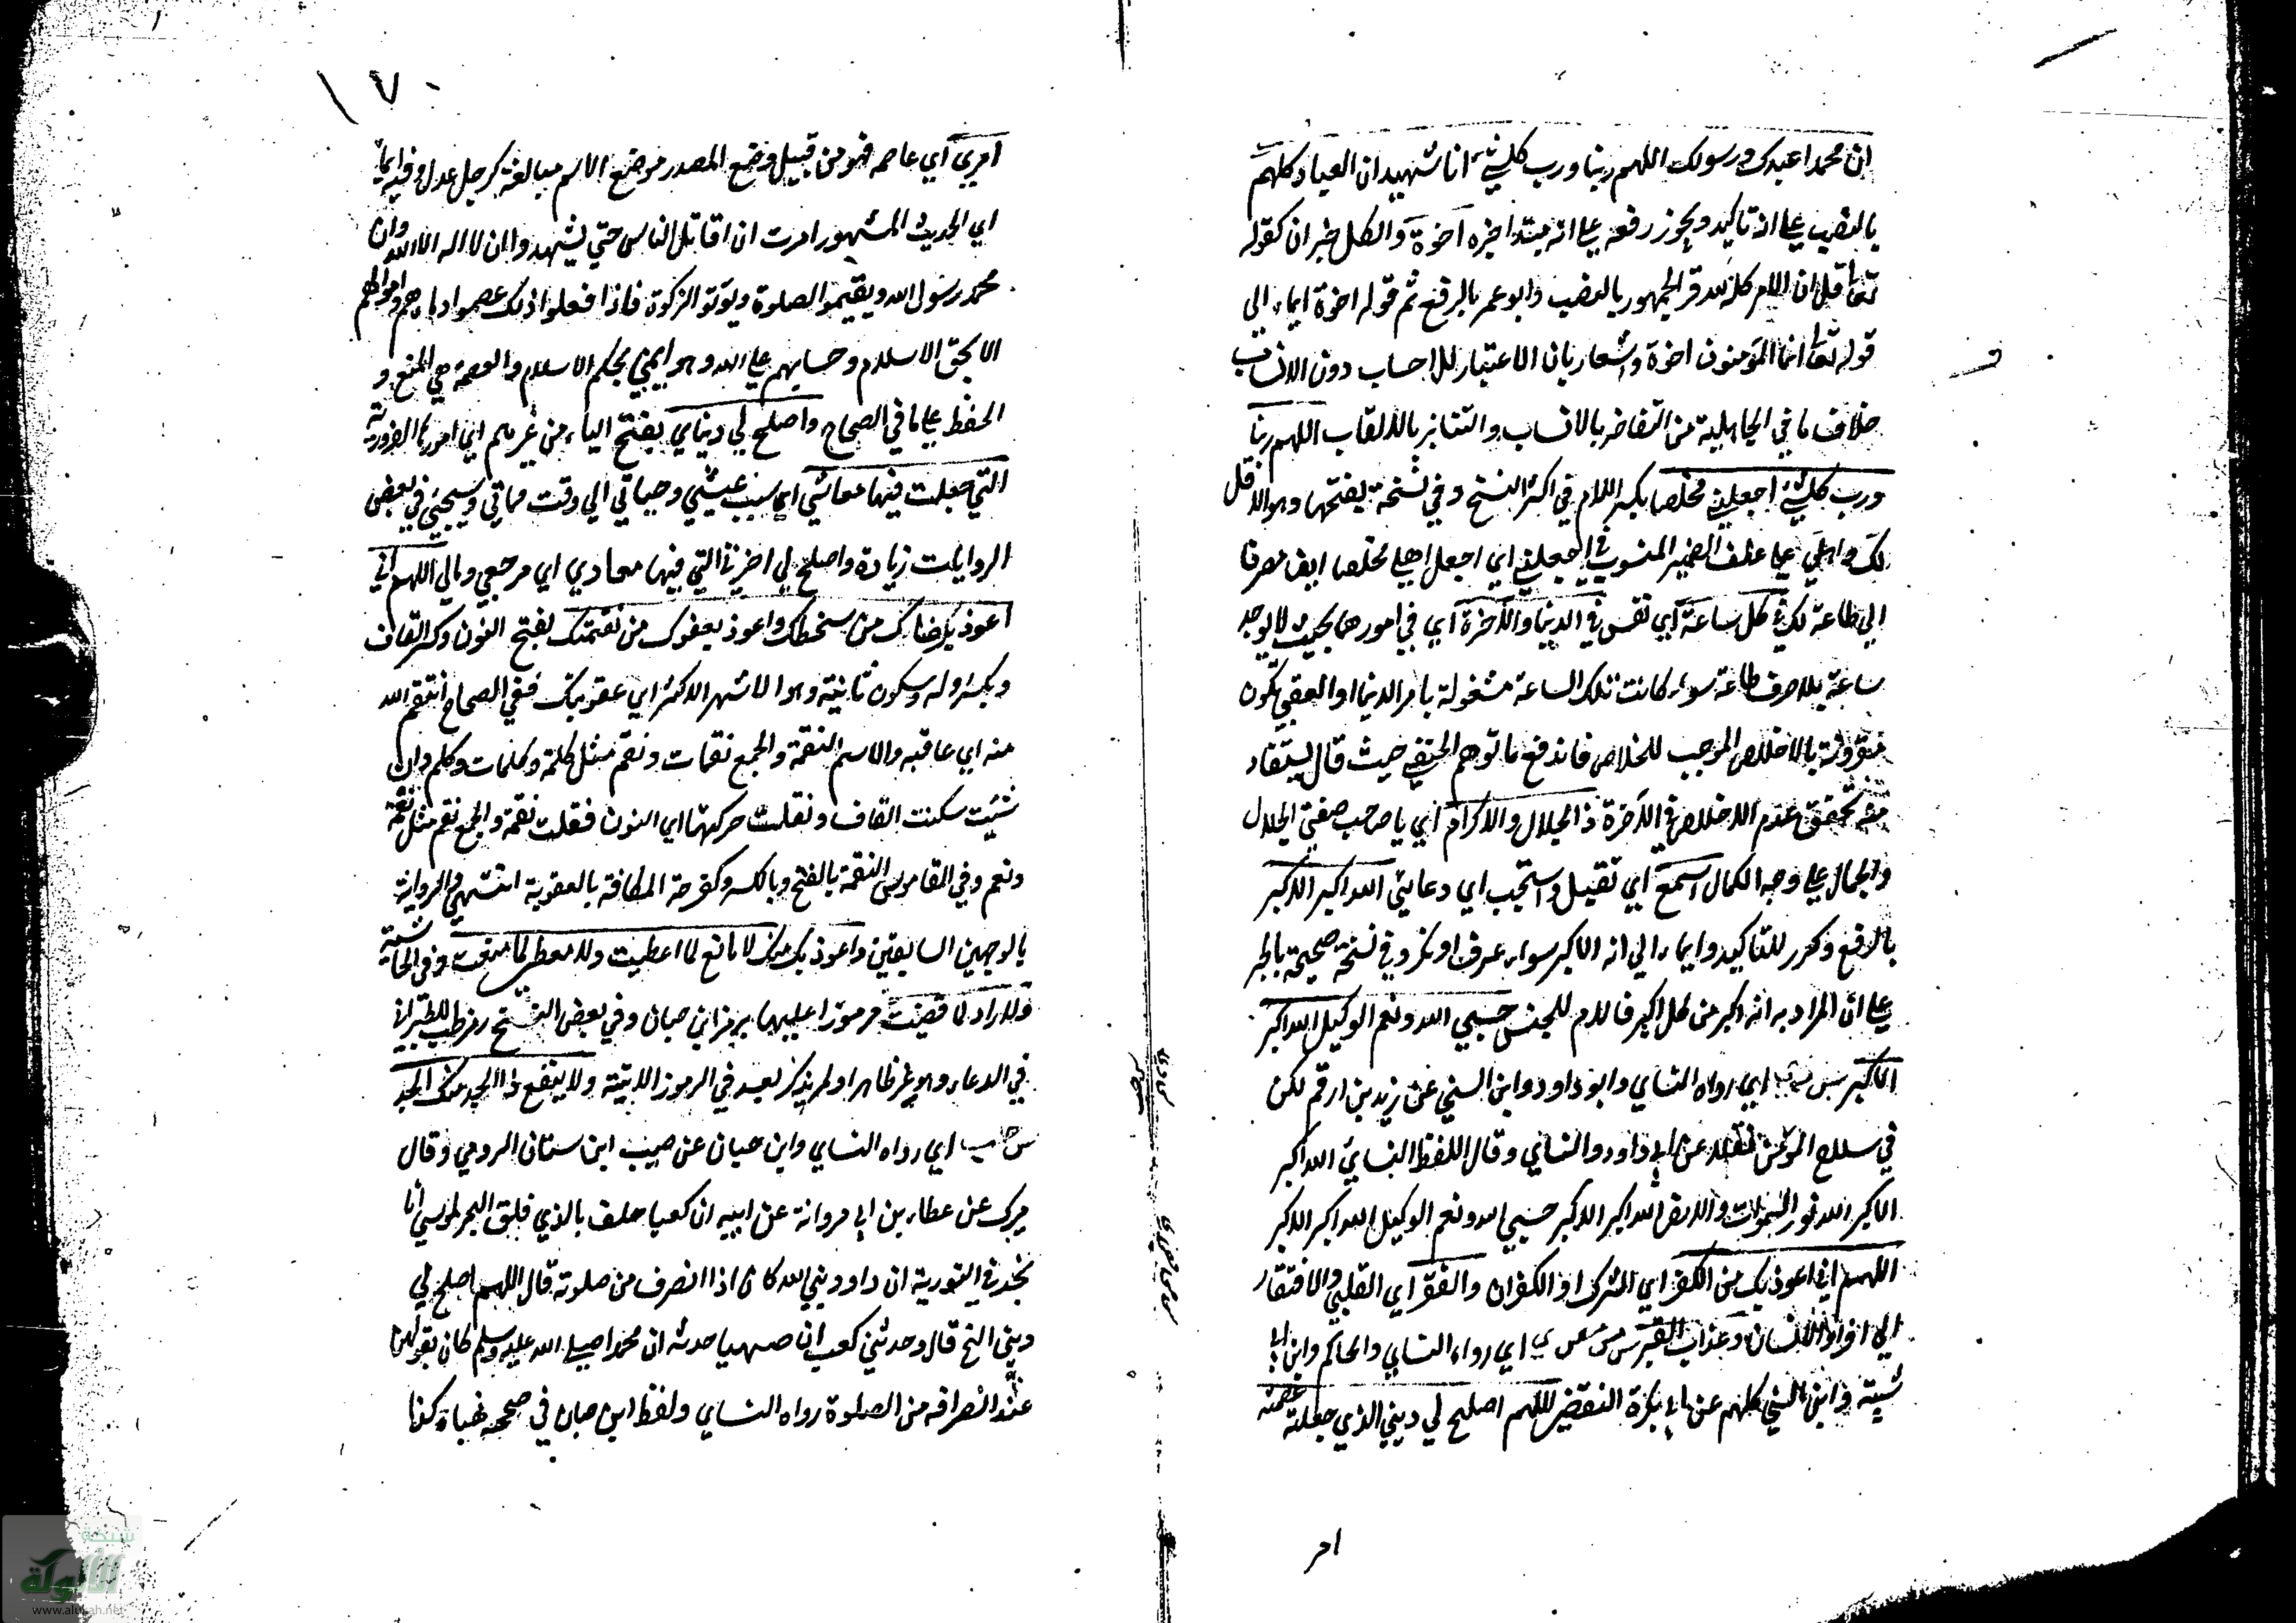 ان محمدا عبدك ورسولك اللهم ربنا ورب كل شئ انا شهيد ان العباد كلهم
بالنصب على انه تاكيد ويجوز رفعه على انه مبتدا خبره اخوة والكل خبر ان كقوله
تعا قل ان الامر كله لله قرا الجمهور بالنصب وابو عمر بالرفع ثم قوله اخوة ايماء الى
قوله تعا انما المؤمنون اخوة واشعار بان الاعتبار للاحساب دون الانساب
خلاف ما في الجاهلية من التفاخر بالانساب والتنابز بالالقاب اللهم ربنا
ورب كل شئ اجعلني مخلصا بكسر اللام في اكثر النسخ وفي نسخة بفتحها وهو الاقل
لك واهلي على عطف الضمير المنصوب في اجعلني اي اجعل اهلي مخلصا ايضا مصرفا
الى طاعة لك في كل ساعة اي نفس في الدنيا والآخرة اي في امورهما بحيث لا يوجد
ساعة بلا صرف طاعة سواء كانت تلك الساعة مشغولة بامر الدنيا او العقبى تكون
مقرونة بالاخلاص الموجب للخلاص فاندفع ما توهم الحنفي حيث قال يستفاد
منه تحقق عدم الاخلاص في الآخرة ذا الجلال والاكرام اي يا صاحب صفتي الجلال
والجمال على وجه الكمال اسمع اي تقبل واستجب اي دعائي الله اكبر الاكبر
بالرفع وكرر للتاكيد وايماء الى انه الاكبر سواء عرف او نكر وفي نسخة صحيحة بالجر
على ان المراد به انه اكبر من كل اكبر فاللام للجنس حسبي الله ونعم الوكيل الله اكبر
الاكبر س د ي اي رواه النساي وابو داود وابن السني عن زيد بن ارقم لكن
في سلاح المؤمن نقله عن ابي داود والنساي وقال اللفظ النساي الله اكبر
الاكبر الله نور السموات والارض الله اكبر الاكبر حسبي الله ونعم الوكيل الله اكبر الاكبر
اللهم اني اعوذ بك من الكفر اي الشرك او الكفران والفقر اي القلبي والافتقار
الى افراد الانسان وعذاب القبر س مس مص ي اي رواه النساي والحاكم وابن ابي
شيبة وابن السني كلهم عن ابي بكرة الثقفي اللهم اصلح لي ديني الذي جعلته عصمة
امري اي عاصمه فهو من قبيل وضع المصدر موضع الاسم مبالغة كرجل عدل وفيه ايماء
اي الحديث المشهور امرت ان اقاتل الناس حتى يشهدوا ان لا اله الا الله وان
محمد رسول الله ويقيموا الصلوة ويؤتو الزكوة فاذا فعلوا ذلك عصموا دماءهم واموالهم
الا بحق الاسلام وحسابهم على الله وهو ايمني بحكم الاسلام والعصمة هي المنع و
الحفظ على ما في الصحاح واصلح لي دنياي بفتح الياء من غير همز اي امورها الضرورية
التي جعلت فيها معاشي اي سبب عيشي وحياتي الى وقت مماتي وسيجئ في بعض
الروايات زيادة واصلح لي اخرتي التي فيها معادي اي مرجعي ومالي اللهم اني
اعوذ برضاك من سخطك واعوذ بعفوك من نقمتك بفتح النون وكسر القاف
وبكسر اوله وسكون ثانيه وهو الاشهر الاكثر اي عقوبتك ففي الصحاح انتقم الله
منه اي عاقبه والاسم النقمة والجمع نقمات ونقم مثل كلمة وكلمات وكلم وان
شئت سكنت القاف ونقلت حركتها الى النون فقلت نقمة والجمع نقم مثل نعمة
ونعم وفي القاموس النقمة بالفتح وبالكسر وكفرحة المكافة بالعقوبة انتهى والرواية
بالوجهين السابقين واعوذ بك منك لا مانع لما اعطيت ولا معطي لما منعت وفي الحاشية
ولا راد لما قضيت مرموزا عليها برمز ابن حبان وفي بعض النسخ رمز طب للطبراني
في الدعاء وهو غير ظاهر او لم يذكر بعد في الرموز الاتية ولا ينفع ذا الجد منك الجد
س حب اي رواه النساي وابن حبان عن صهيب ابن سنان الرومي وقال
ميرك عن عطاء بن ابي مروانة عن ابيه ان كعبا حلف بالذي فلق البحر لموسى انا
نجد في التورية ان داود نبي الله كان اذا انصرف من صلوته قال اللهم اصلح لي
ديني الخ قال وحدثني كعب ان صهيبا حدثه ان محمدا صلى الله عليه وسلم كان يقولهن
عند انصرافه من الصلوة رواه النساي ولفظ ابن حبان في صحيحه
شبكة
الألوكة
www.alukah.net